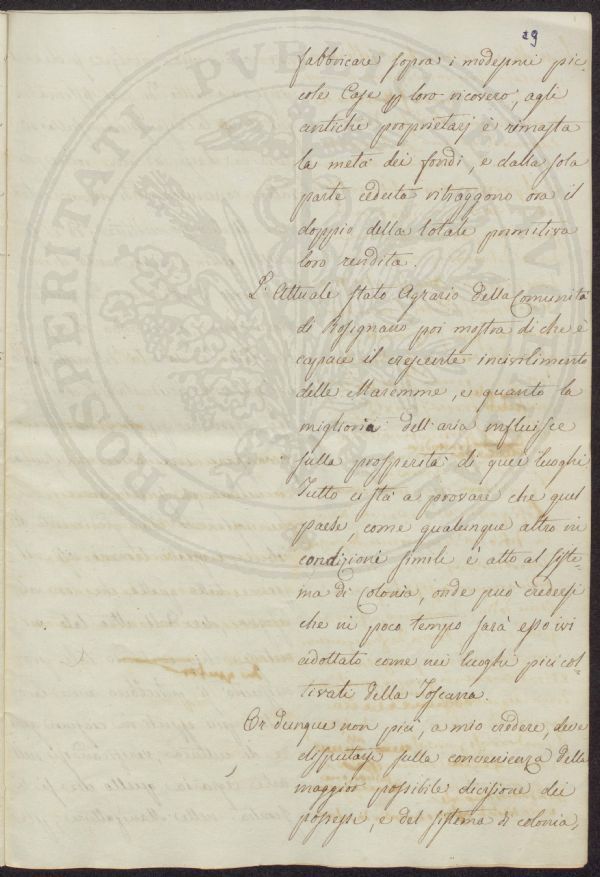 29
fabbricare sopra i medesimi pic-
cole Case p loro ricovero; agli
antichi proprietarj è rimasta
la metà dei fondi, e dalla sola
parte ceduta ritraggono ora il
doppio della totale primitiva
loro rendita.
L'Attuale stato Agrario della Comunità
di Rosignano poi mostra di che è
capace il crescente incivilimento
delle Maremme, e quanto la
miglioria dell'aria influisce
sulla prosperità di quei luoghi
Tutto ci stà a provare che quel
paese, come qualunque altro in
condizioni simile è atto al siste-
ma di Colonia, onde può credersi
che in poco tempo sarà esso ivi
adottato come nei luoghi più col-
tivati della Toscana.
Or dunque non più, a mio credere, deve
disputarsi sulla convenienza della
maggior possibile divisione dei
possessi, e del sistema di colonia,
PROSPERITATI PVBLICAE AVGENDAE